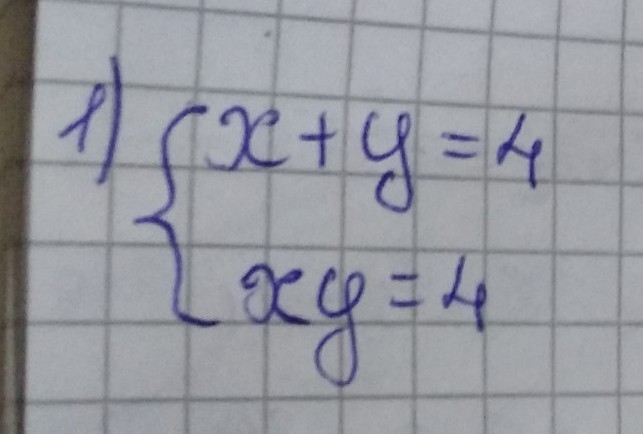 1) { x + y = 4
xy = 4